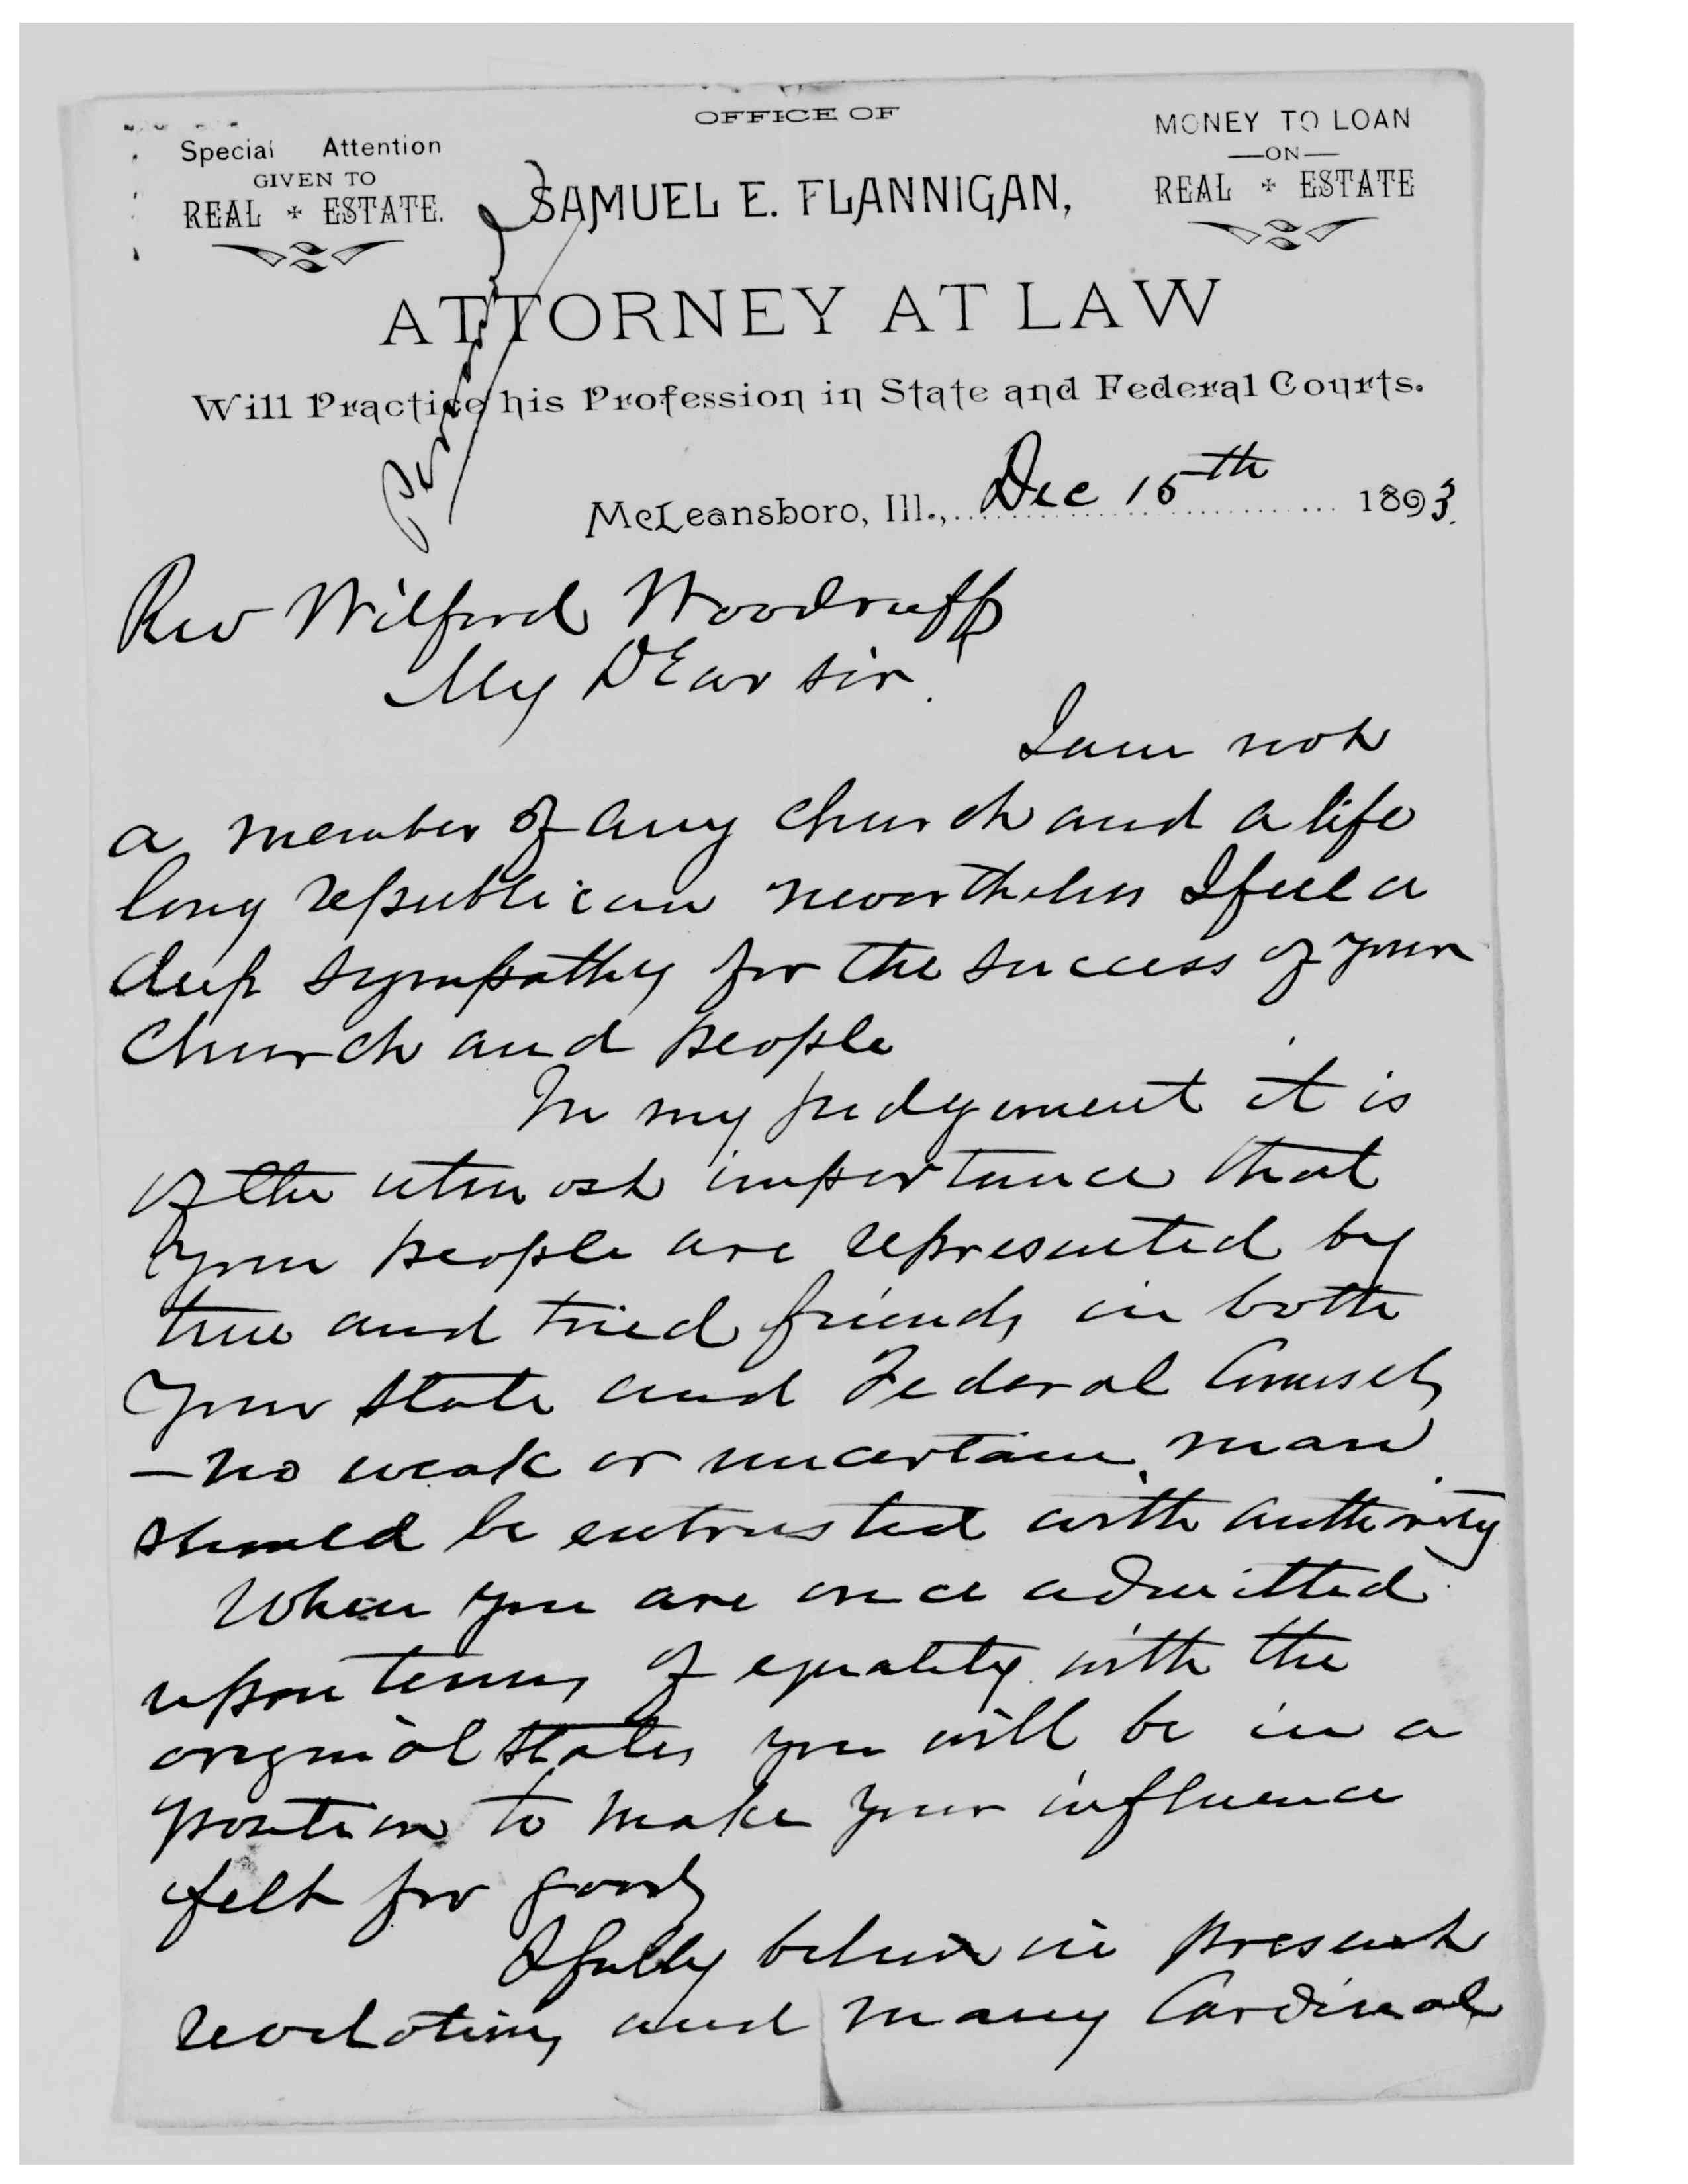 OFFICE OF
Special Attention
GIVEN TO
REAL ESTATE.
SAMUEL E. FLANNIGAN,
MONEY TO LOAN
—ON—
REAL ESTATE
ATTORNEY AT LAW
Will Practice his Profession in State and Federal Courts.
Personal
McLeansboro, Ill., Dec 15th 1893.
Rev Wilford Woodruff
My Dear sir.
I am not
a member of any church and a life
long republican nevertheless I feel a
deep sympathy for the success of your
Church and people
In my judgement it is
of the utmost importance that
your people are represented by
true and tried friends in both
your state and Federal Counsels
— no weak or uncertain man
should be entrusted with authority
When you are once admitted
upon terms of equality with the
original states you will be in a
position to make your influence
felt for good
I fully believe in present
revelations and many Cardinal